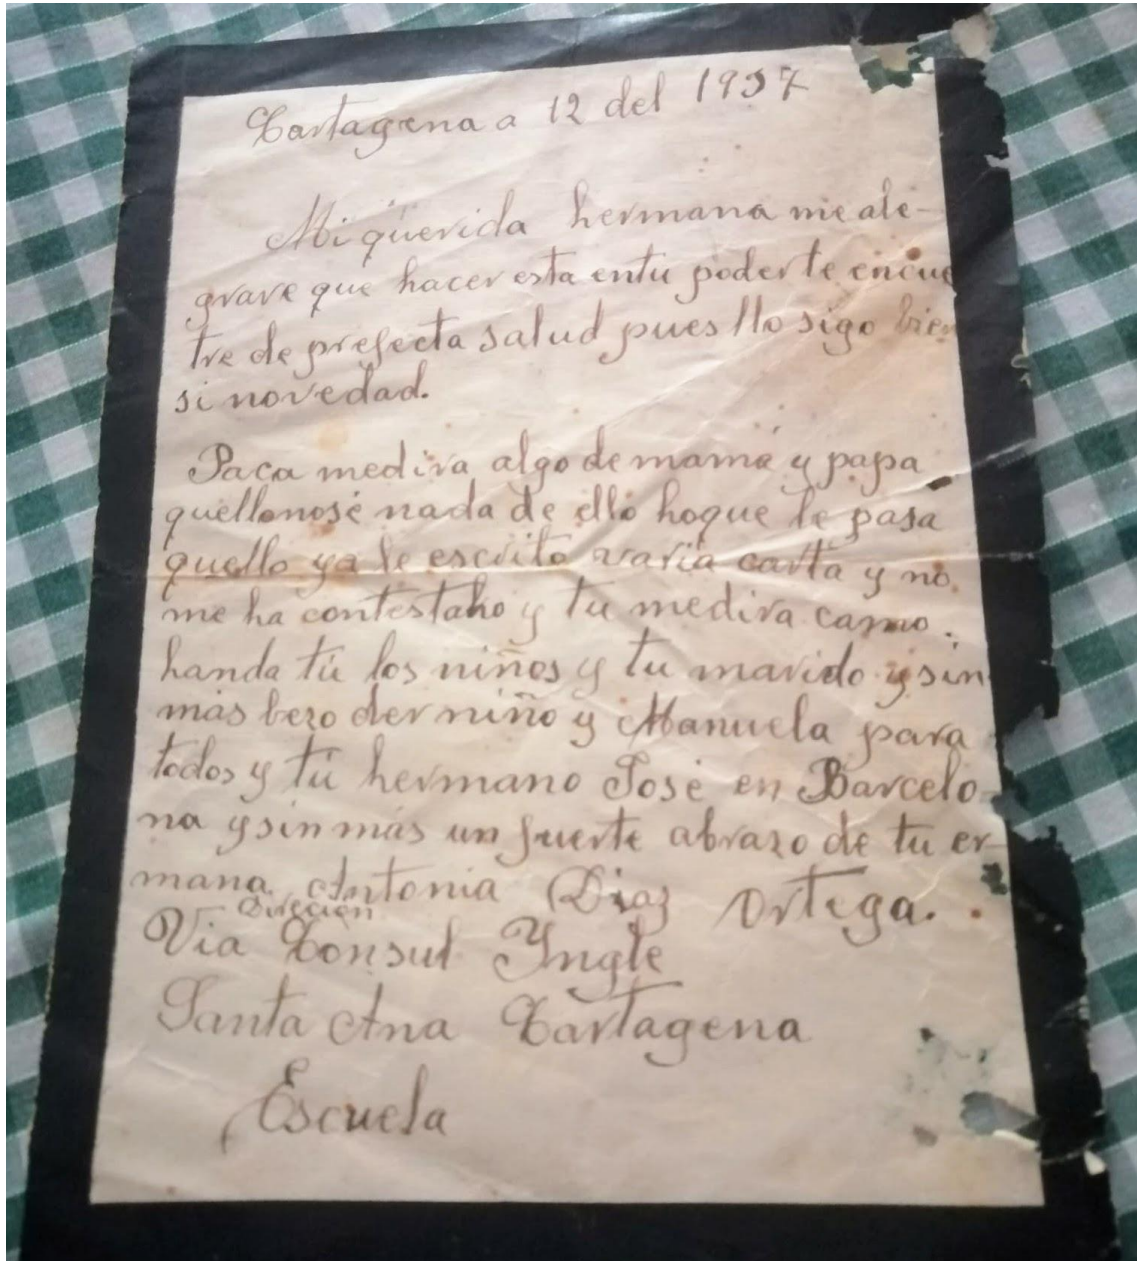 Cartagena a 12 del 1937
Mi querida hermana me ale-
grare que hacer esta entu poder te encue
tre de prefecta salud pues llo sigo bien
si novedad.
Paca medira algo de mamá y papa
quellonosé nada de ello hoque le pasa
quello ya le escrito varia carta y no
me ha contestaho y tu medira camo
handa tú los niños y tu marido y sin
más bezo der niño y Manuela para
todos y tú hermano José en Barcelo
na y sin más un fuerte abrazo de tu er-
mana Antonia Diaz Ortega.
Direcion
Via Cónsul Yngle
Santa Ana Cartagena
Escuela